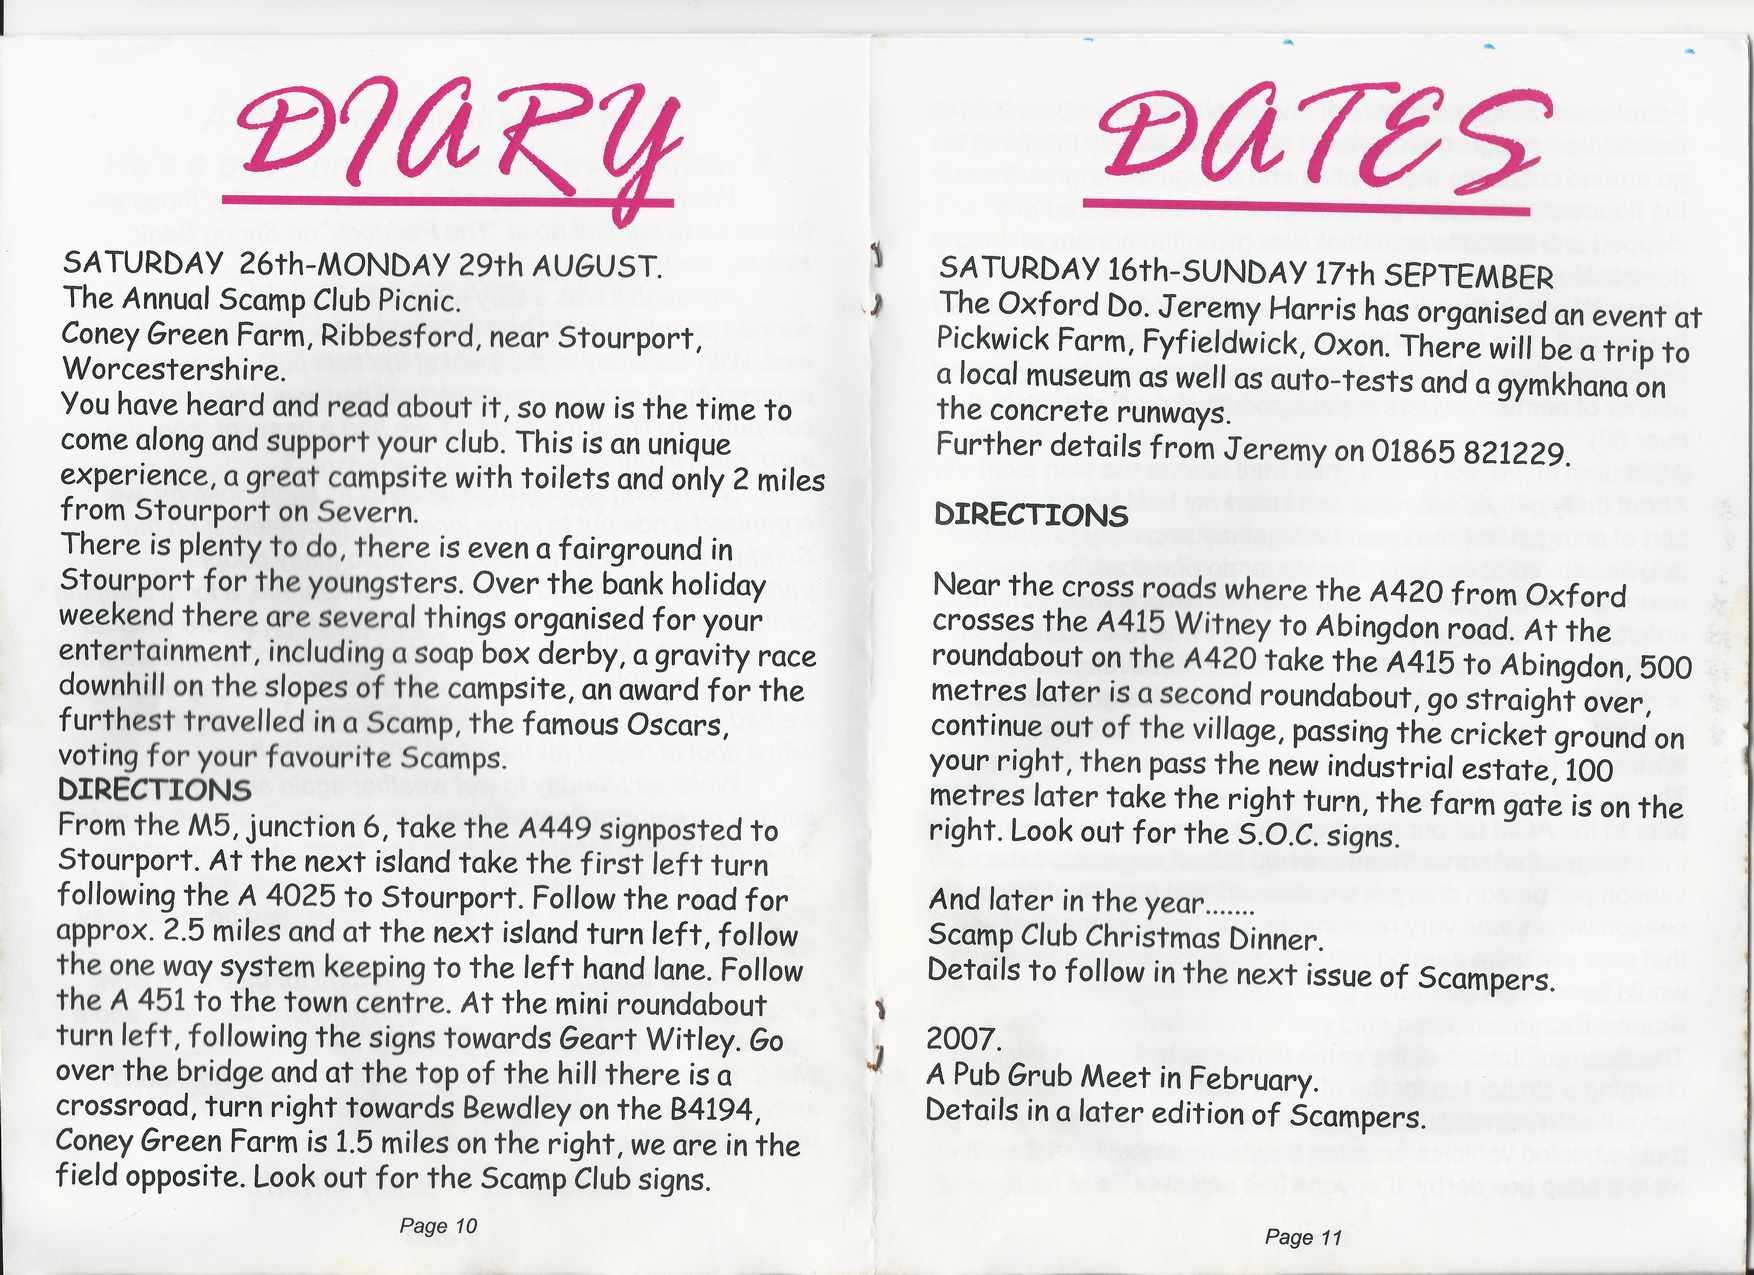 DIARY
SATURDAY 26th-MONDAY 29th AUGUST.
The Annual Scamp Club Picnic.
Coney Green Farm, Ribbesford, near Stourport,
Worcestershire.
You have heard and read about it, so now is the time to
come along and support your club. This is an unique
experience, a great campsite with toilets and only 2 miles
from Stourport on Severn.
There is plenty to do, there is even a fairground in
Stourport for the youngsters. Over the bank holiday
weekend there are several things organised for your
entertainment, including a soap box derby, a gravity race
downhill on the slopes of the campsite, an award for the
furthest travelled in a Scamp, the famous Oscars,
voting for your favourite Scamps.
DIRECTIONS
From the M5, junction 6, take the A449 signposted to
Stourport. At the next island take the first left turn
following the A 4025 to Stourport. Follow the road for
approx. 2.5 miles and at the next island turn left, follow
the one way system keeping to the left hand lane. Follow
the A 451 to the town centre. At the mini roundabout
turn left, following the signs towards Geart Witley. Go
over the bridge and at the top of the hill there is a
crossroad, turn right towards Bewdley on the B4194,
Coney Green Farm is 1.5 miles on the right, we are in the
field opposite. Look out for the Scamp Club signs.
Page 10
DATES
SATURDAY 16th-SUNDAY 17th SEPTEMBER
The Oxford Do. Jeremy Harris has organised an event at
Pickwick Farm, Fyfieldwick, Oxon. There will be a trip to
a local museum as well as auto-tests and a gymkhana on
the concrete runways.
Further details from Jeremy on 01865 821229.
DIRECTIONS
Near the cross roads where the A420 from Oxford
crosses the A415 Witney to Abingdon road. At the
roundabout on the A420 take the A415 to Abingdon, 500
metres later is a second roundabout, go straight over,
continue out of the village, passing the cricket ground on
your right, then pass the new industrial estate, 100
metres later take the right turn, the farm gate is on the
right. Look out for the S.O.C. signs.
And later in the year.......
Scamp Club Christmas Dinner.
Details to follow in the next issue of Scampers.
2007.
A Pub Grub Meet in February.
Details in a later edition of Scampers.
Page 11